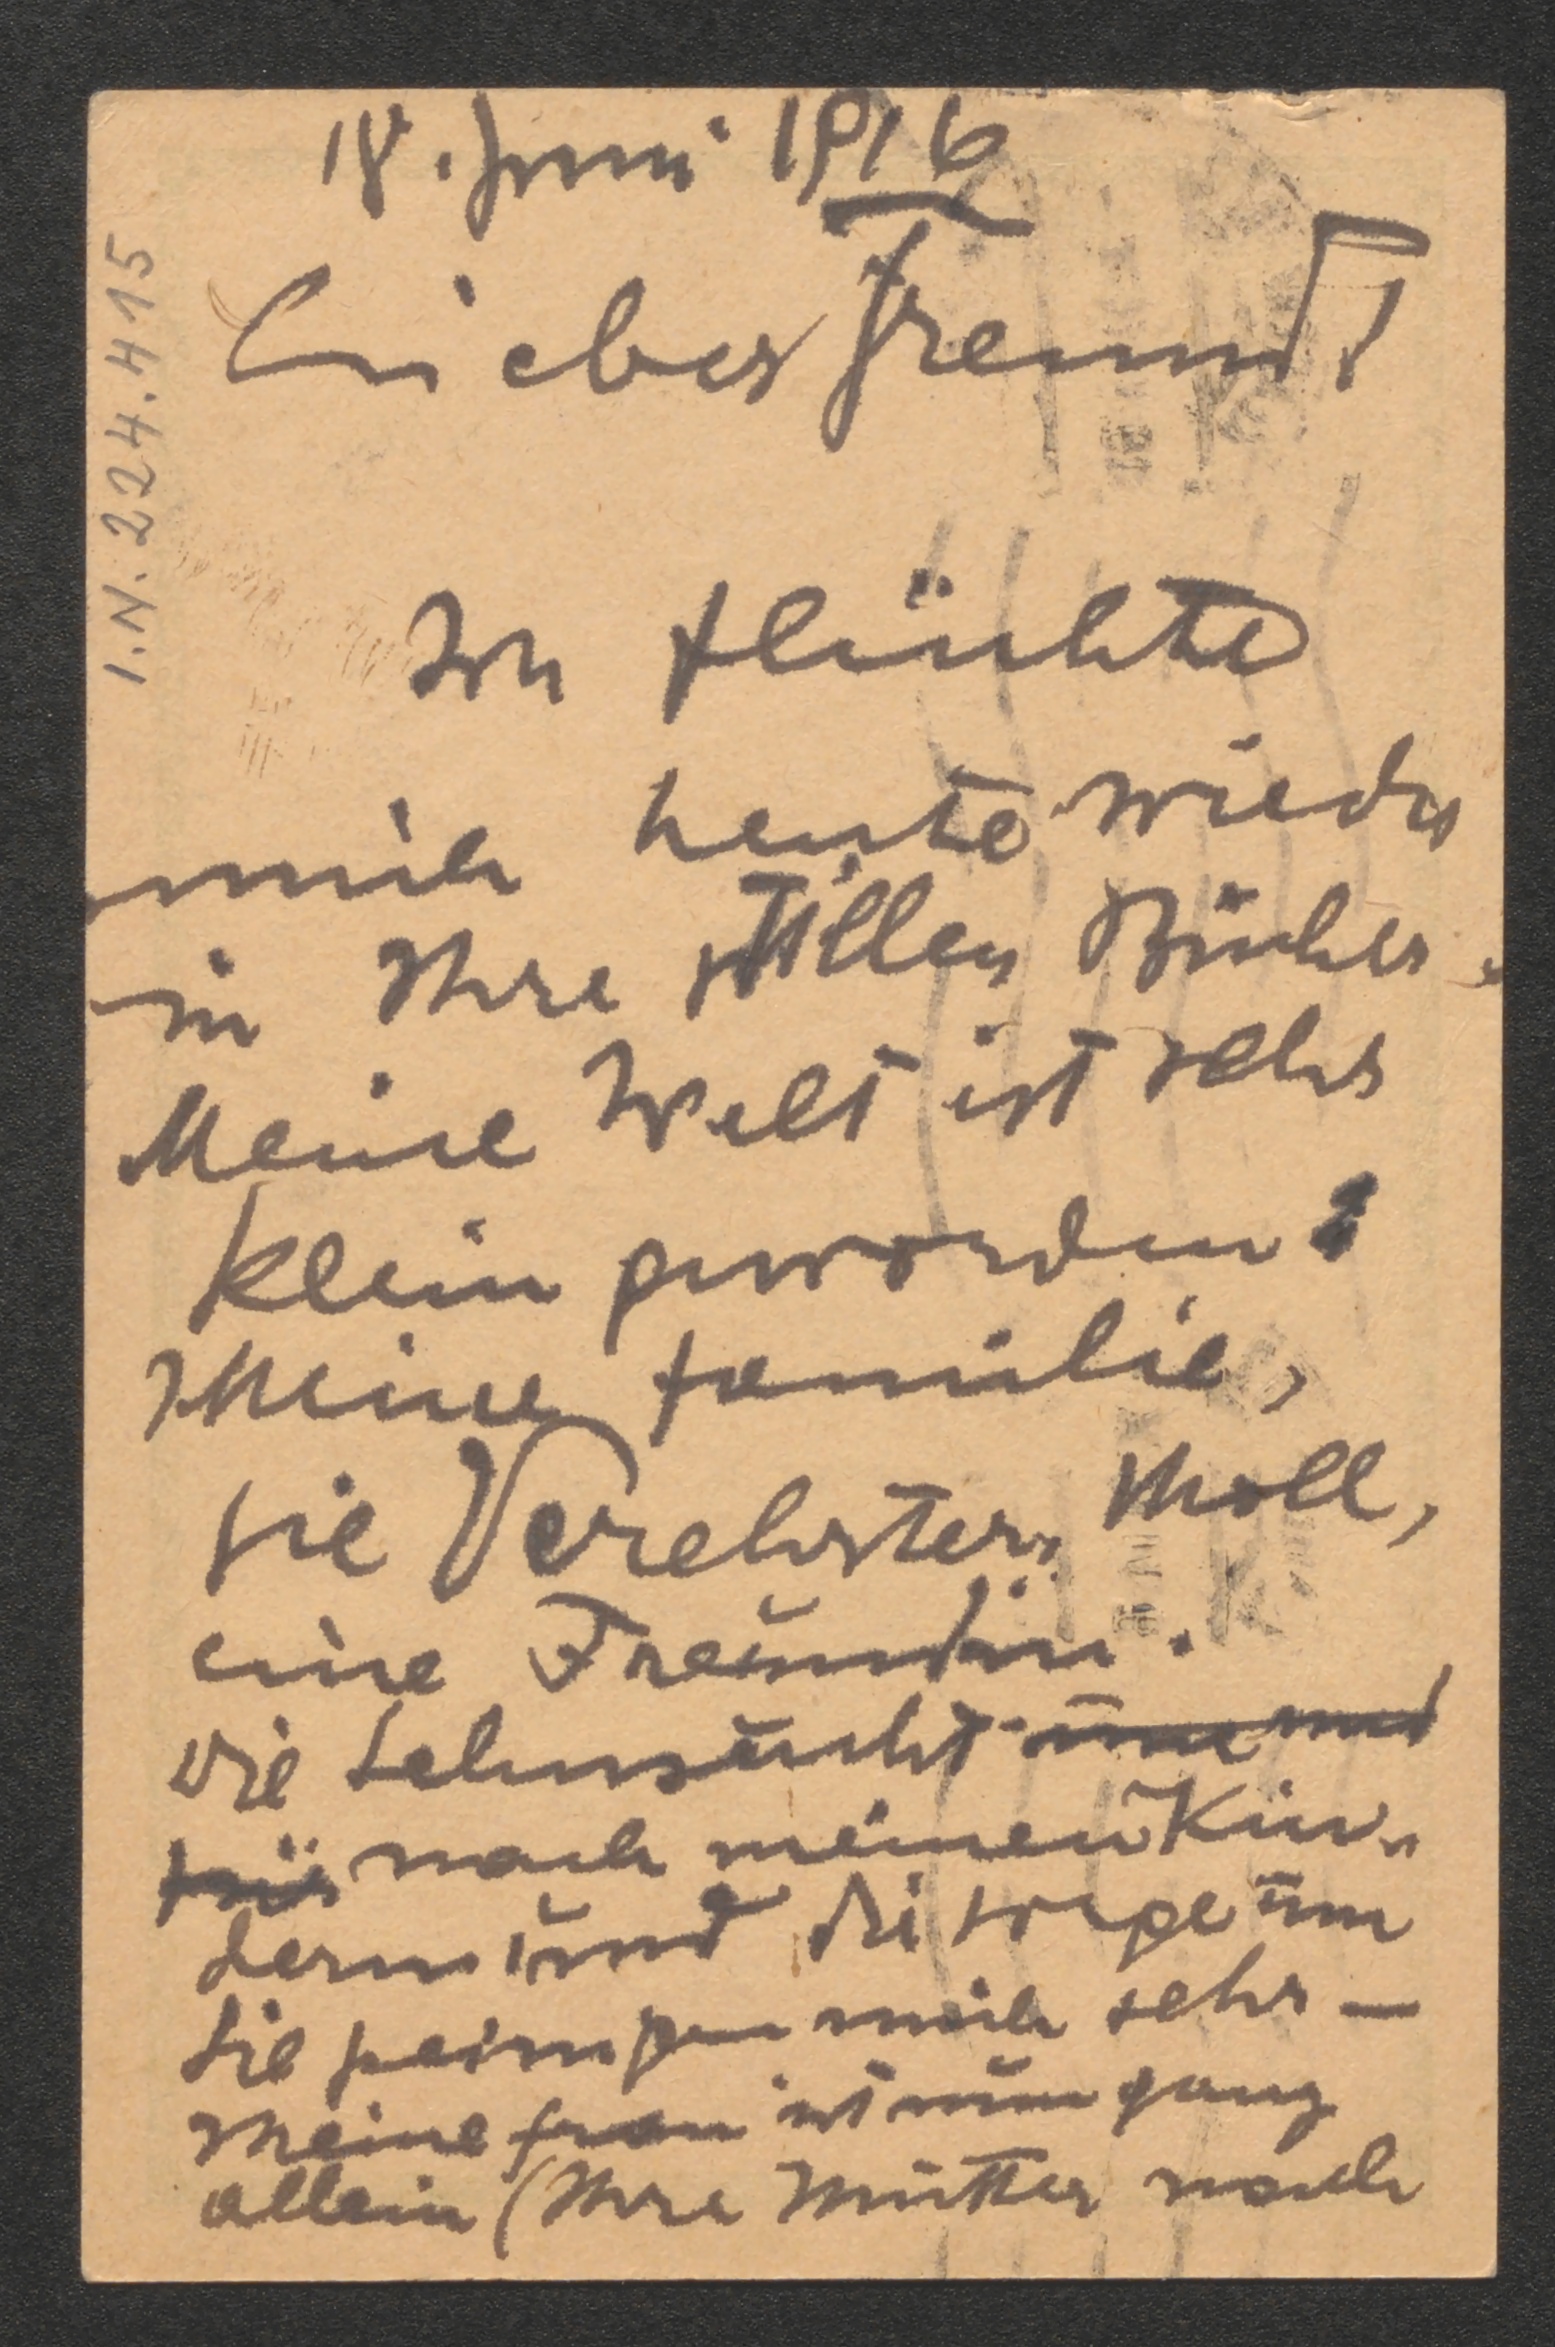 18. Juni 1916
Lieber Freund!
I.N. 224.415
Ich flüchte
mich heute wieder
in Ihre stillen Bücher.
Meine Welt ist sehr
klein geworden:
Meine Familie,
Sie Verehrter, Moll,
eine Freundin.
Die Sehnsucht
nach meinen Kin-
dern und die Sorge um
Sie peinigen mich sehr —
Meine Frau ist nun ganz
allein (Ihre Mutter nach